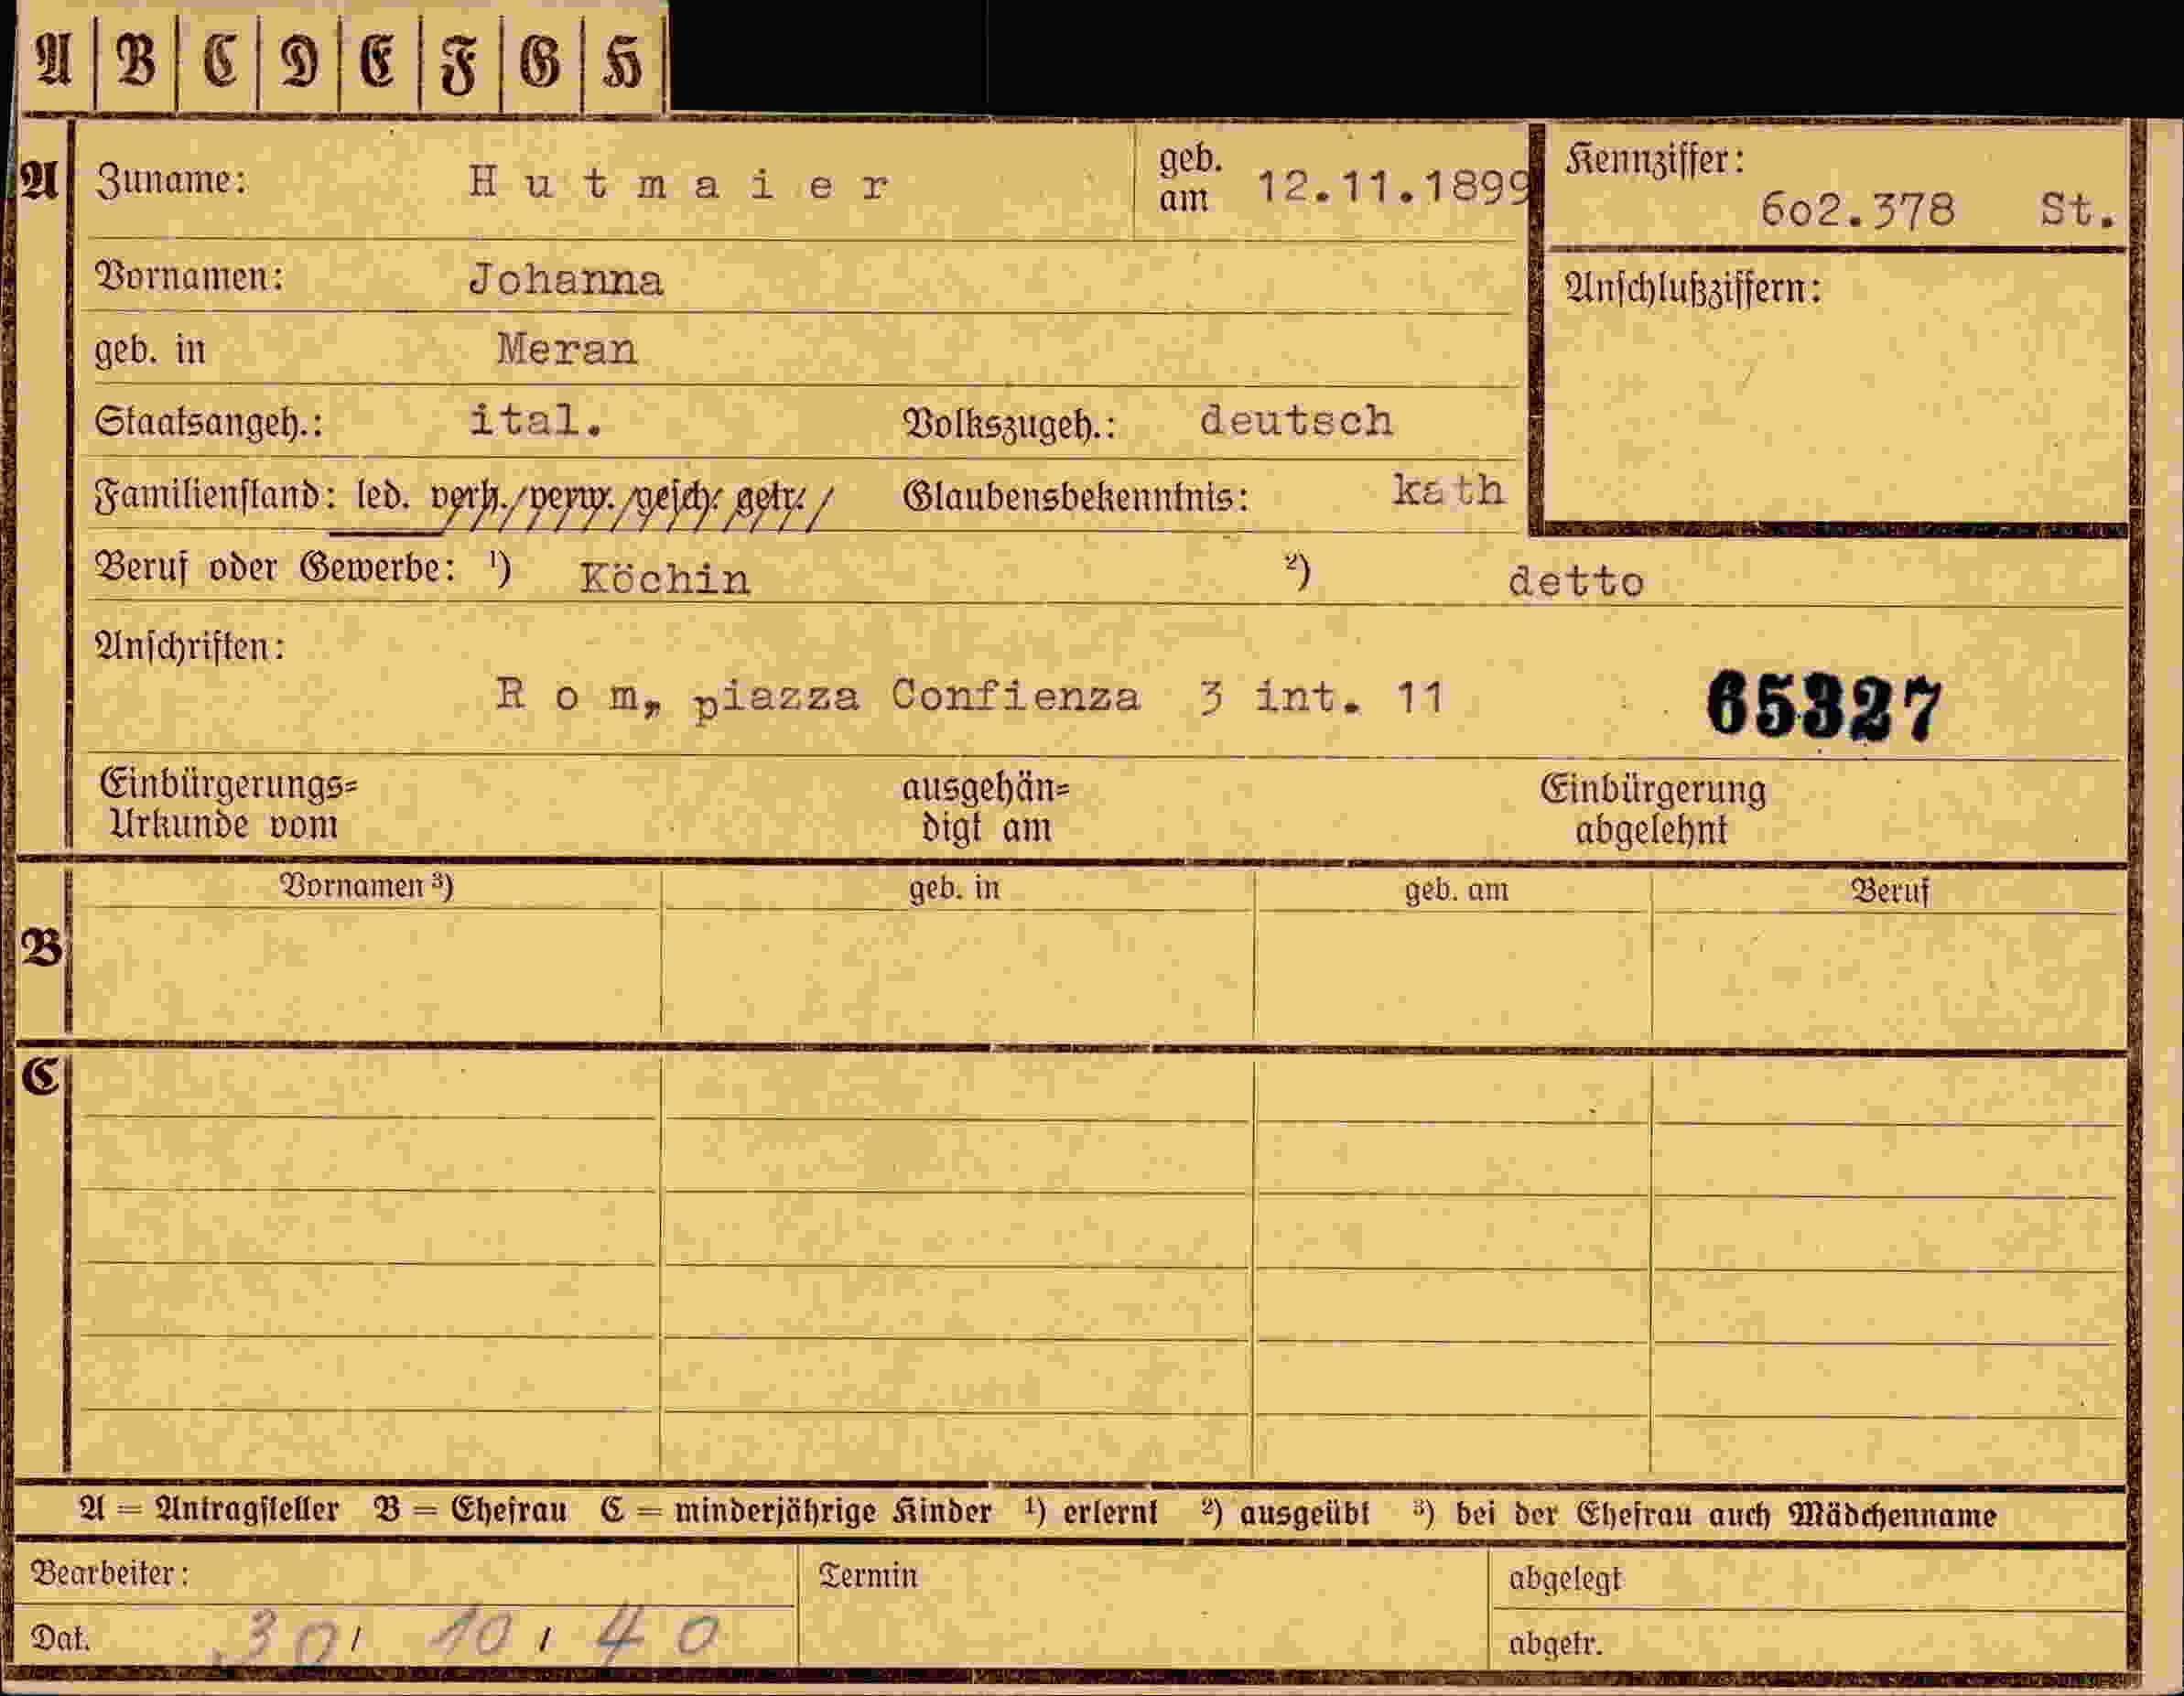 A B C D E F G H
A Zuname: Hutmaier geb. am 12.11.1899 Kennziffer: 602.378 St.
Vornamen: Johanna Anschlußziffern:
geb. in Meran
Staatsangeh.: ital. Volkszugeh.: deutsch
Familienstand: led. verh. verw. gesch. getr. Glaubensbekenntnis: kath
Beruf oder Gewerbe: ¹) Köchin ²) detto
Anschriften:
Rom, piazza Confienza 3 int. 11 65327
Einbürgerungs= ausgehän= Einbürgerung
Urkunde vom digt am abgelehnt
Vornamen ³) geb. in geb. am Beruf
B
C
A = Antragsteller B = Ehefrau C = minderjährige Kinder ¹) erlernt ²) ausgeübt ³) bei der Ehefrau auch Mädchenname
Bearbeiter: Termin abgelegt
Dat. 30/ 10/ 40 abgetr.